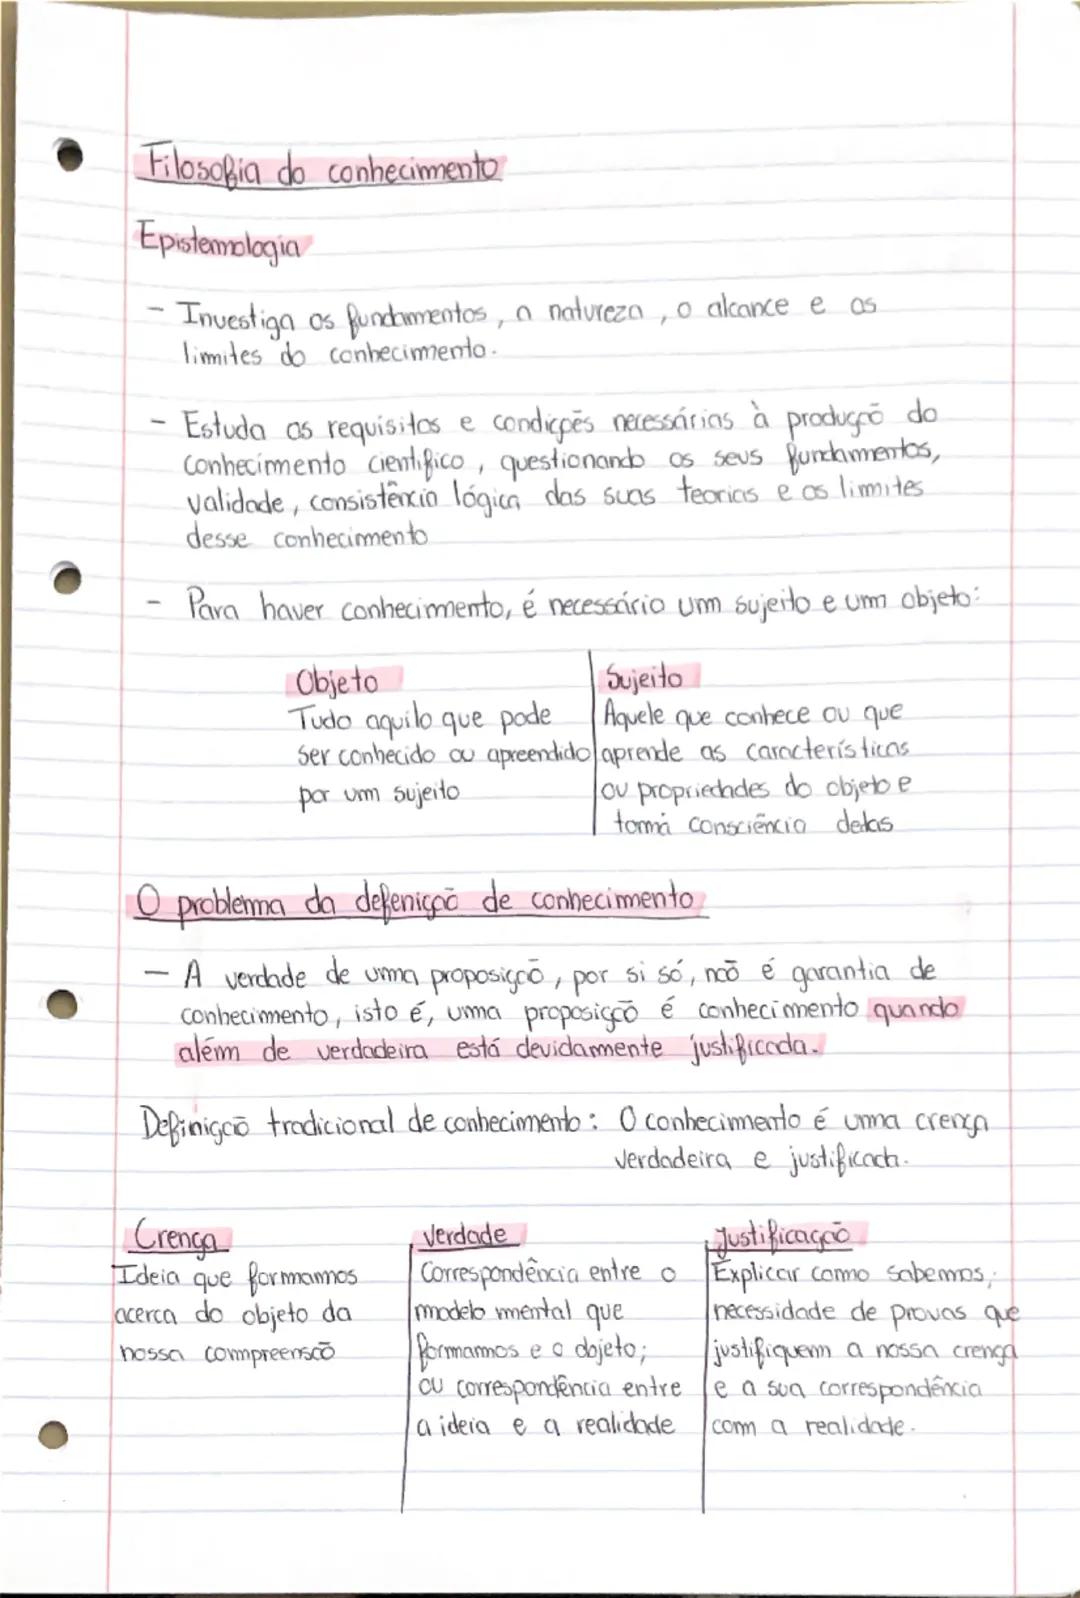 Filosofia do conhecimento
Epistemologia
- Investiga os fundamentos, a natureza, o alcance e os
limites do conhecimento.
- Estuda os requisitos e condições necessárias à produção do
conhecimento científico, questionando os seus fundamentos,
validade, consistência lógica das suas teorias e os limites
desse conhecimento
- Para haver conhecimento, é necessário um sujeito e um objeto:
Objeto
Tudo aquilo que pode
ser conhecido ou apreendido
por um sujeito
Sujeito
Aquele que conhece ou que
aprende as características
ou propriedades do objeto e
tomá consciência delas
O problema da defenição de conhecimento
- A verdade de uma proposição, por si só, não é garantia de
conhecimento, isto é, uma proposição é conhecimento quando
além de verdadeira está devidamente justificada.
Definição tradicional de conhecimento: O conhecimento é uma crença
verdadeira e justificada.
Crença
Ideia que formamos
acerca do objeto da
nossa compreensão
Verdade
Correspondência entre o
modelo mental que
formamos e o objeto;
ou correspondência entre
a ideia e a realidade
Justificação
Explicar como sabemos;
necessidade de provas que
justifiquem a nossa crença
e a sua correspondência
com a realidade.